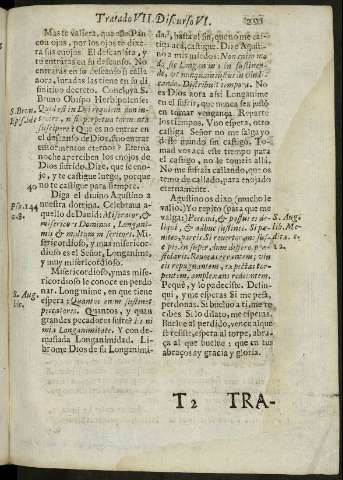 Tratado VII. Discurso VI.
Mas te valiera, que este Pan
con ojas, por los ojos te dixe-
ra sus enojos. El descansára, y
tu entráras en su descanso. No
entrarás en su descanso si calla
aora, juradas las tiene en su di-
finitivo decreto. Concluya S.
Bruno Obispo Herbipolense:
S. Bron.
Quid est in Dei requiem non in-
trare, nisi perpetua tormenta
suscipere? Que es no entrar en
el descanso de Dios, sino entrar
en tormentos eternos? Eterna
noche aperciben los enojos de
Dios sufrido. Dize, que se eno-
je, y te castigue luego, porque
40
no te castigue para siempre.
Diga el divino Agustino a
nuestra dotrina. Celebrava a-
Ps. 144
quello de David: Miserator, &
misericors Dominus, Longani-
mis & multum misericors. Mi-
sericordioso, y mas misericor-
dioso es el Señor, Longanime,
y muy misericordioso.
Misericordioso, y mas mise-
ricordioso le conoce en perdo-
nar. Longanime, en que tiene
S. Aug.
espera: Quantos enim sustinet
pecatores. Quantos, y quan
grandes pecadores sufre? Et ni-
mia Longanimitate. Y con de-
masiada Longanimidad. Li-
brome Dios de su Longanimi-
dad, hasta el fin, que no me cas-
tigue acá, castigue. Dize Agusti-
no a mis miedos: Non enim mo-
do sis Longanimis in sustinen-
do, & non Longanimis in vindi-
cando. Distribuit tempora. No
es Dios aora assi Longanime
en el sufrir, que nunca sea justo
en tomar vengança. Reparte
los tiempos. Vno espera, otro
castiga Señor no me salga yo
deste mundo sin castigo. To-
mad vos acá este tiempo para
el castigo, no le tomeis allá.
No me sufrais callando, que os
temo de callado, para enojado
eternamente.
Agustino os dixo (mucho le
valio). Yo repito (para que me
valga:) Peccavi, & passus es deli-
S. Aug.
qui, & adhuc sustines. Si pœ-
niteo, parcis. Si revertor, sus-
cipis. In super, dum differo, præ-
stolaris. Revocas errantem; vin-
cis repugnantem, expectas tor-
pentem, amplexans redeuntem.
Pequè, y lo padeciste. Delin-
qui, y me esperas Si me pesa,
perdonas. Si buelvo a ti, me re-
cibes. Si lo dilato, me esperas.
Buelve al perdido, vence al que
se resiste, espera al torpe, abra-
ça al que buelve; que en tus
abraços ay gracia y gloria.
T 2 TRA-